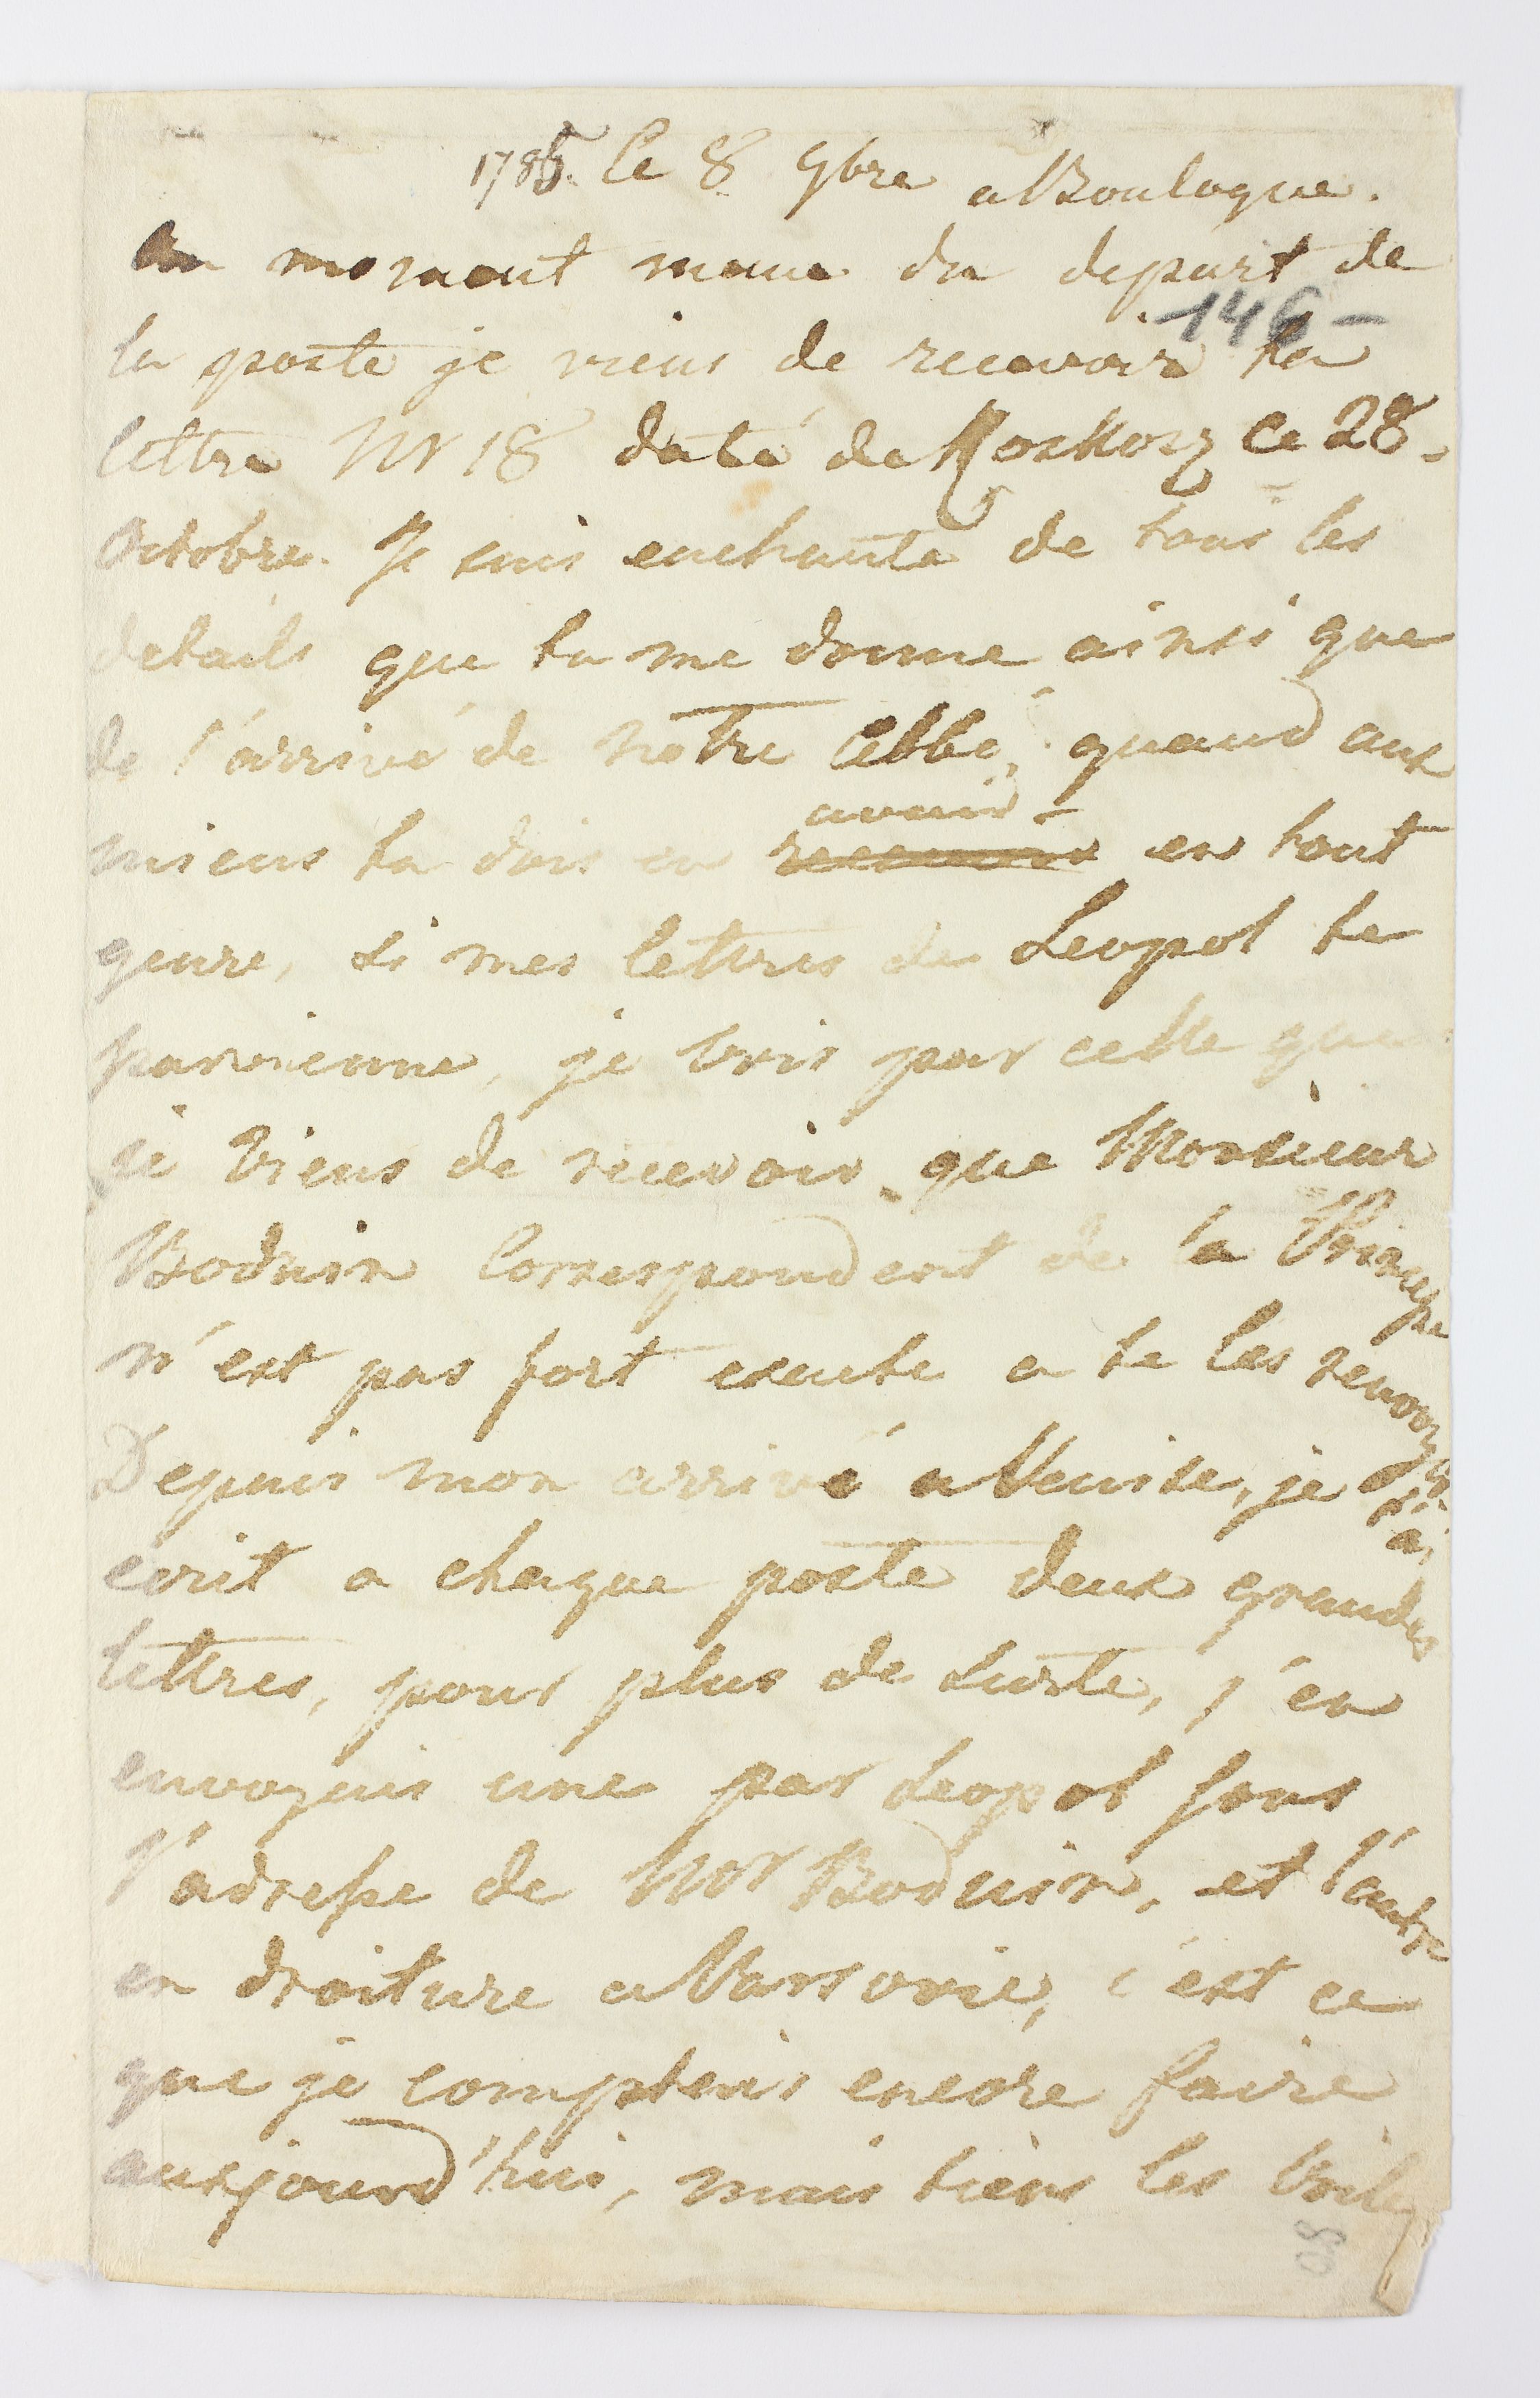 1785. le 8 9bre a Boulogne.
au moment meme du depart de
146 -
la poste je viens de recevoir ta
lettre Nr 18 daté de le 28
Octobre. Je suis enchanté de tous les
details que tu me donne ainsi que
de l'arrivé de notre Abbé, quand aux
avoir
miens tu dois en recevoir en tout
genre, si mes lettres de Leopol te
parvienne, je vois par celle que
je viens de recevoir que Monsieur
Boduin Correspondent de la
n'est pas fort exacte a te les renvoyer
Depuis mon arrivé a Venise, je t'ai
écrit a chaque poste deux grandes
lettres, pour plus de surté, j'en
envoyais une par Leopol sous
l'adresse de Mr Boduin, et l'autre
en droiture a Varsovie, c'est ce
que je comptais encore faire
aujourd'hui, mais tiens les voila
98